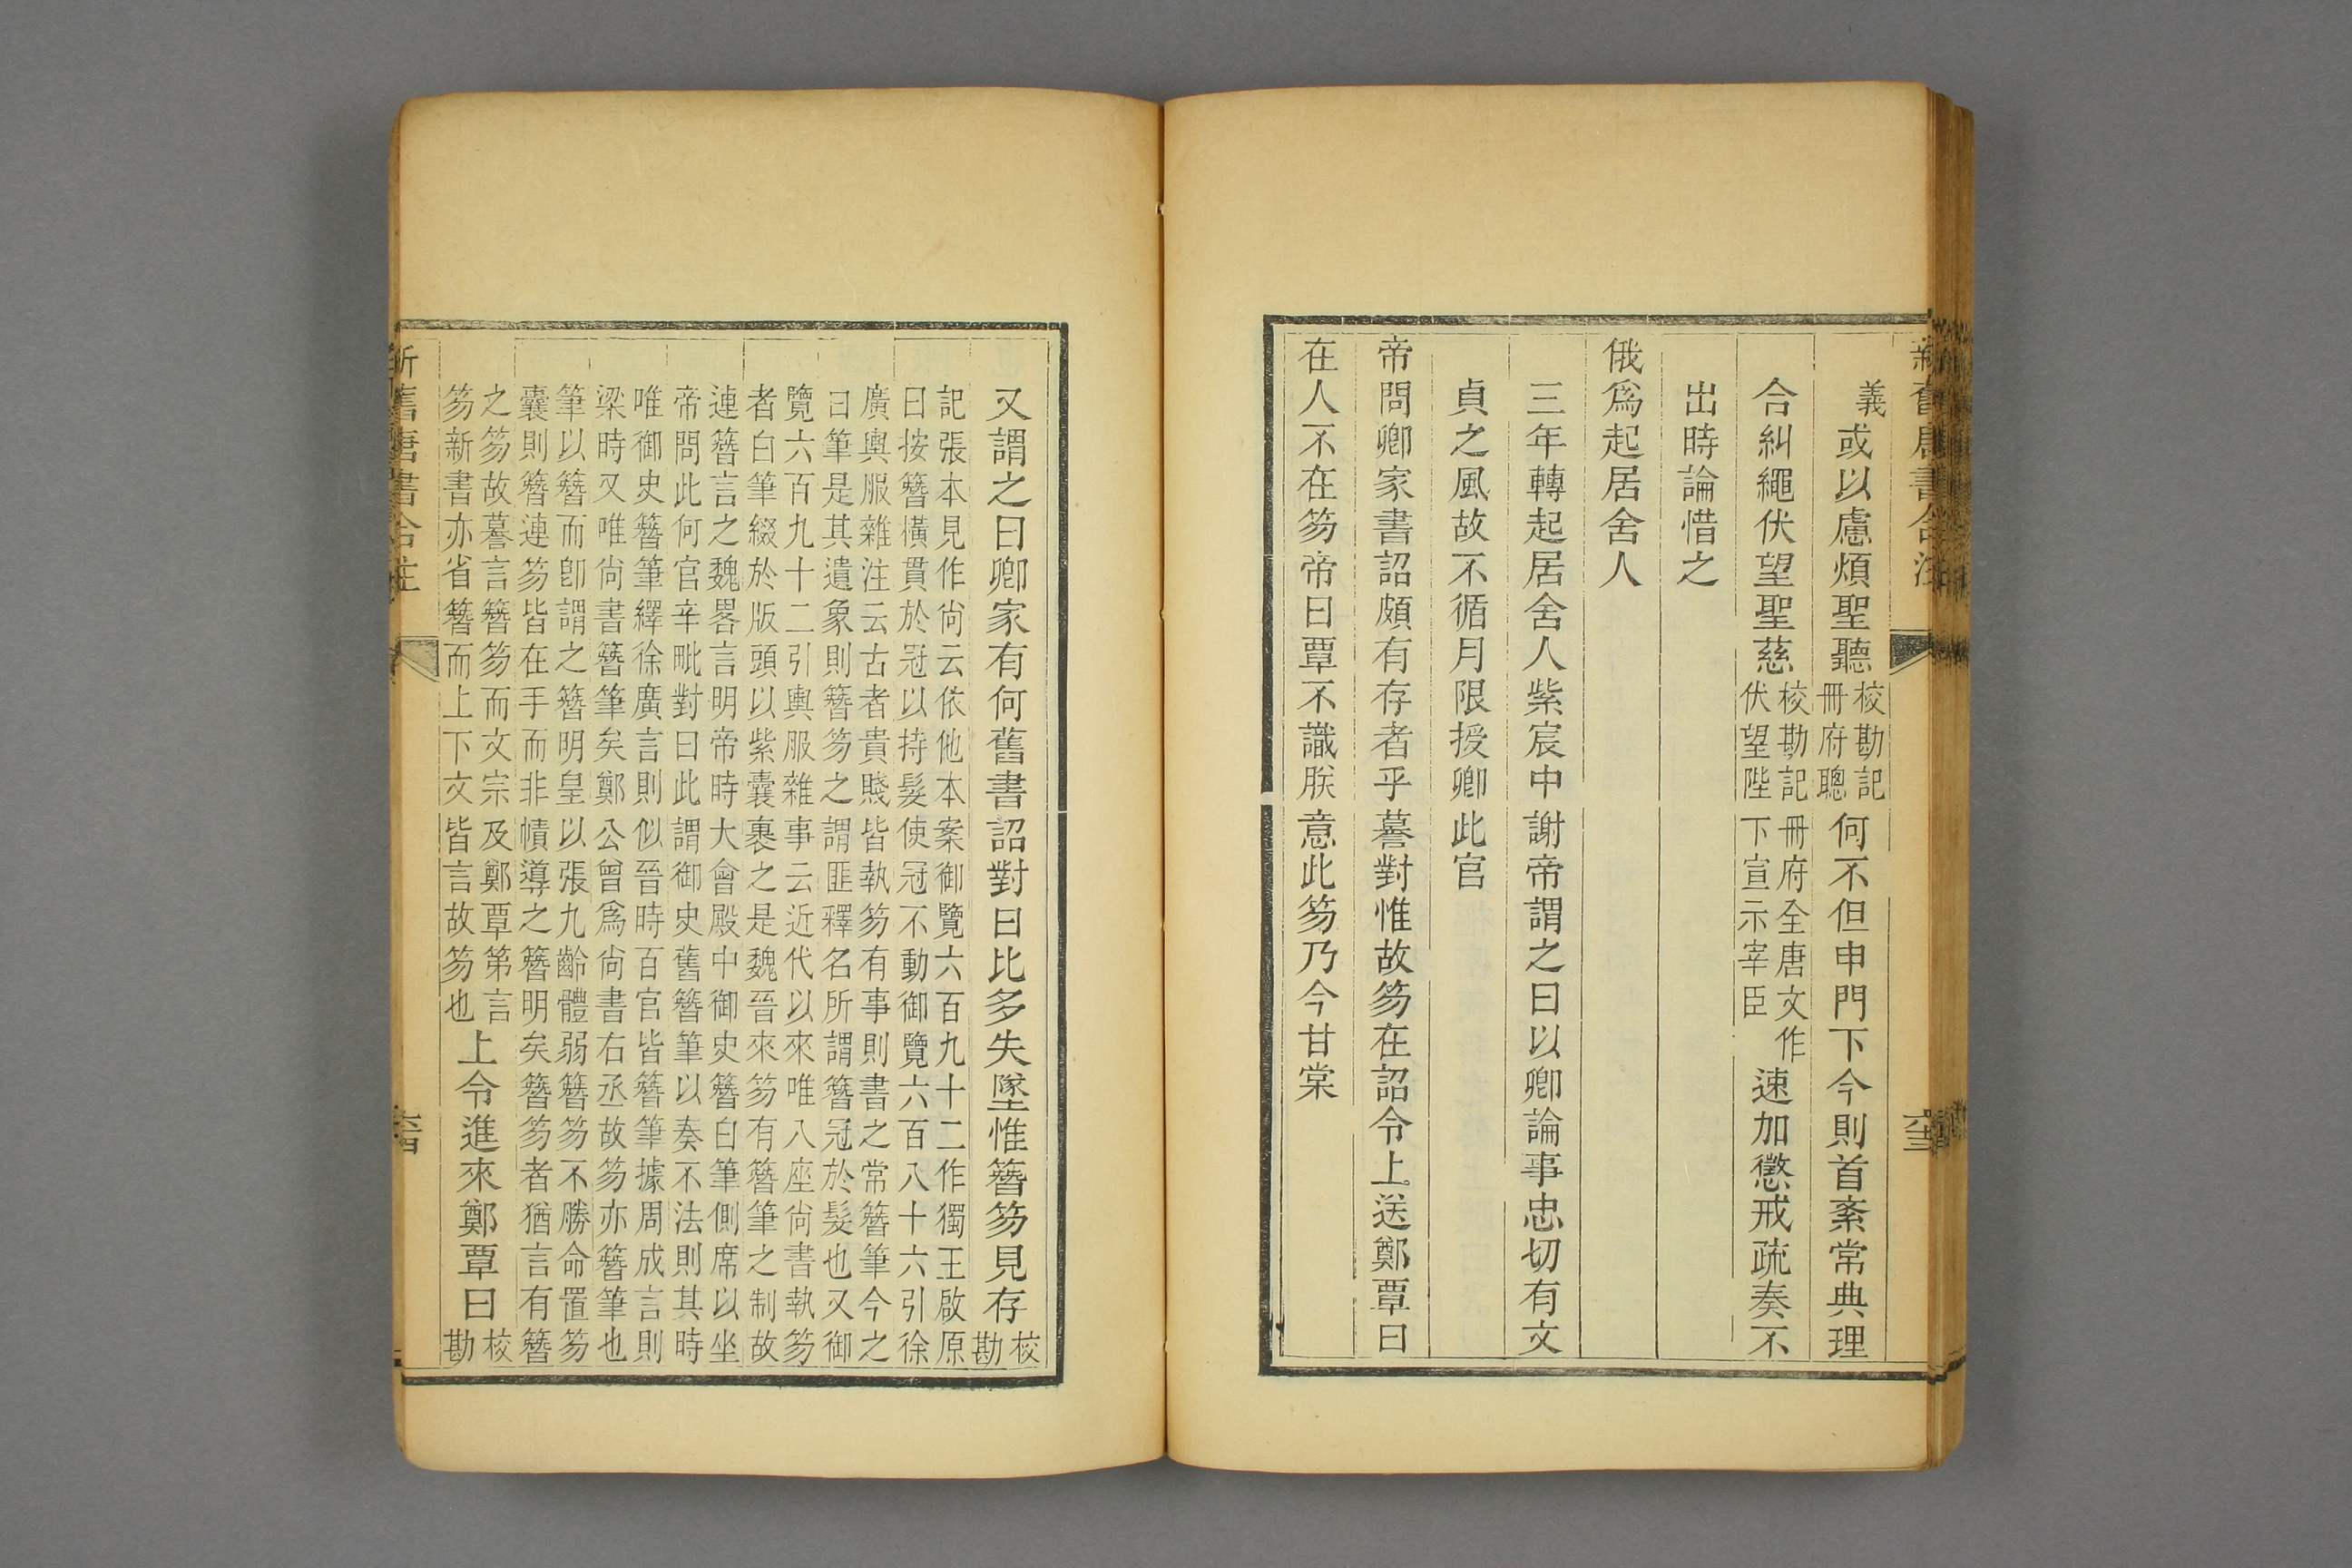 新舊唐書合注
六十三
義或以慮煩聖聽校勘記冊府聰何不但申門下今則首紊常典理
合糾繩伏望聖慈校勘記冊府全唐文作伏望陛下宣示宰臣速加懲戒疏奏不
出時論惜之
俄爲起居舍人
三年轉起居舍人紫宸中謝帝謂之曰以卿論事忠切有文
貞之風故不循月限授卿此官
帝問卿家書詔頗有存者乎謩對惟故笏在詔令上送鄭覃曰
在人不在笏帝曰覃不識朕意此笏乃今甘棠
又謂之曰卿家有何舊書詔對曰比多失墜惟簪笏見存校勘
記張本見作尙云依他本案御覽六百九十二作獨王啟原
曰按簪橫貫於冠以持髮使冠不動御覽六百八十六引徐
廣輿服雜注云古者貴賤皆執笏有事則書之常簪筆今之
曰筆是其遺象則簪笏之謂匪釋名所謂簪冠於髮也又御
覽六百九十二引輿服雜事云近代以來唯八座尙書執笏
者白筆綴於版頭以紫囊裹之是魏晉來笏有簪筆之制故
連簪言之魏畧言明帝時大會殿中御史簪白筆側席以坐
帝問此何官辛毗對曰此謂御史舊簪筆以奏不法則其時
唯御史簪筆繹徐廣言則似晉時百官皆簪筆據周成言則
梁時又唯尙書簪筆矣鄭公曾爲尙書右丞故笏亦簪筆也
筆以簪而卽謂之簪明皇以張九齡體弱簪笏不勝命置笏
囊則簪連笏皆在手而非幘導之簪明矣簪笏者猶言有簪
之笏故謩言簪笏而文宗及鄭覃第言
笏新書亦省簪而上下文皆言故笏也上令進來鄭覃曰校勘
新舊唐書合注
六十四